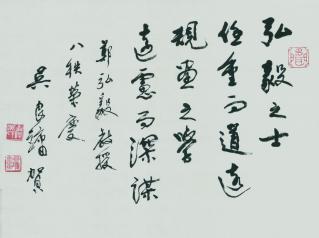 弘毅之士
任重而道远
规画之学
远虑而深谋
郑弘毅教授
八秩荣庆
吴良镛贺